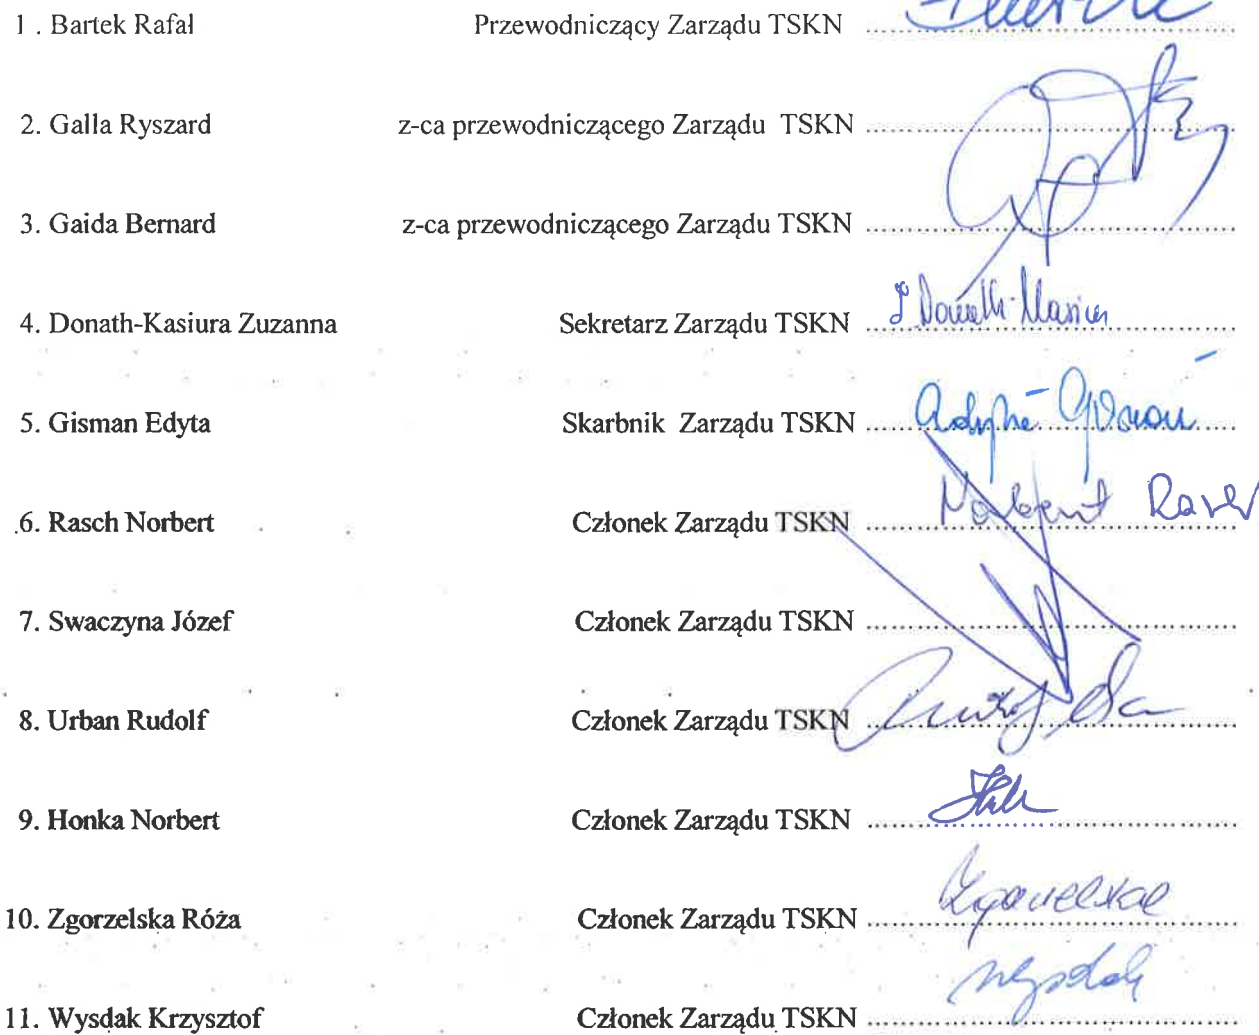 1 . Bartek Rafał Przewodniczący Zarządu TSKN ..............................
2. Galla Ryszard z-ca przewodniczącego Zarządu TSKN ..............................
3. Gaida Bernard z-ca przewodniczącego Zarządu TSKN ..............................
4. Donath-Kasiura Zuzanna Sekretarz Zarządu TSKN ..............................
5. Gisman Edyta Skarbnik Zarządu TSKN ..............................
6. Rasch Norbert Członek Zarządu TSKN .............................. Norbert Rasch
7. Swaczyna Józef Członek Zarządu TSKN ..............................
8. Urban Rudolf Członek Zarządu TSKN ..............................
9. Honka Norbert Członek Zarządu TSKN ..............................
10. Zgorzelska Róża Członek Zarządu TSKN ..............................
11. Wysdak Krzysztof Członek Zarządu TSKN ..............................